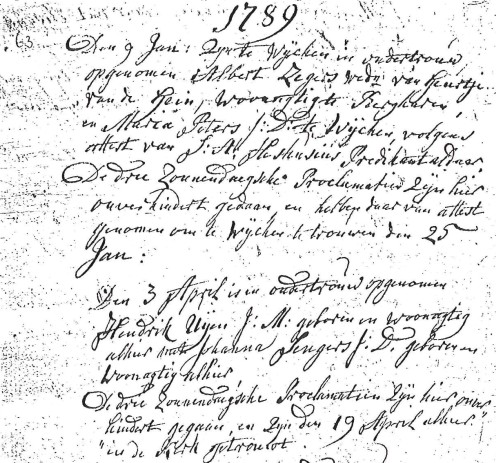 1789
63
Den 9 Jan: Zyn te Wychen in ondertrouw
opgenomen Albert Zegers wedr van Heintje
van de Hein, woonagtig te Berghaven
en Maria Peters J: D: te Wychen, volgens
attest van J: A: Heshusius Predikant aldaar
De drie Zonnendaegsche Proclamatien Zyn hier
onverhindert gedaan, en hebben daar van attest
genomen om te Wychen te trouwen den 25
Jan:
Den 3 April is in ondertrouw opgenomen
Hendrik Uijen J: M: geboren en woonagtig
alhier met Johanna Jengers J: D: geboren en
woonagtig alhier
De drie Zonnendaegsche Proclamatien Zyn hier onver
hindert gegaan, en Zyn den 19 April alhier
in de Kerk getrouwt.